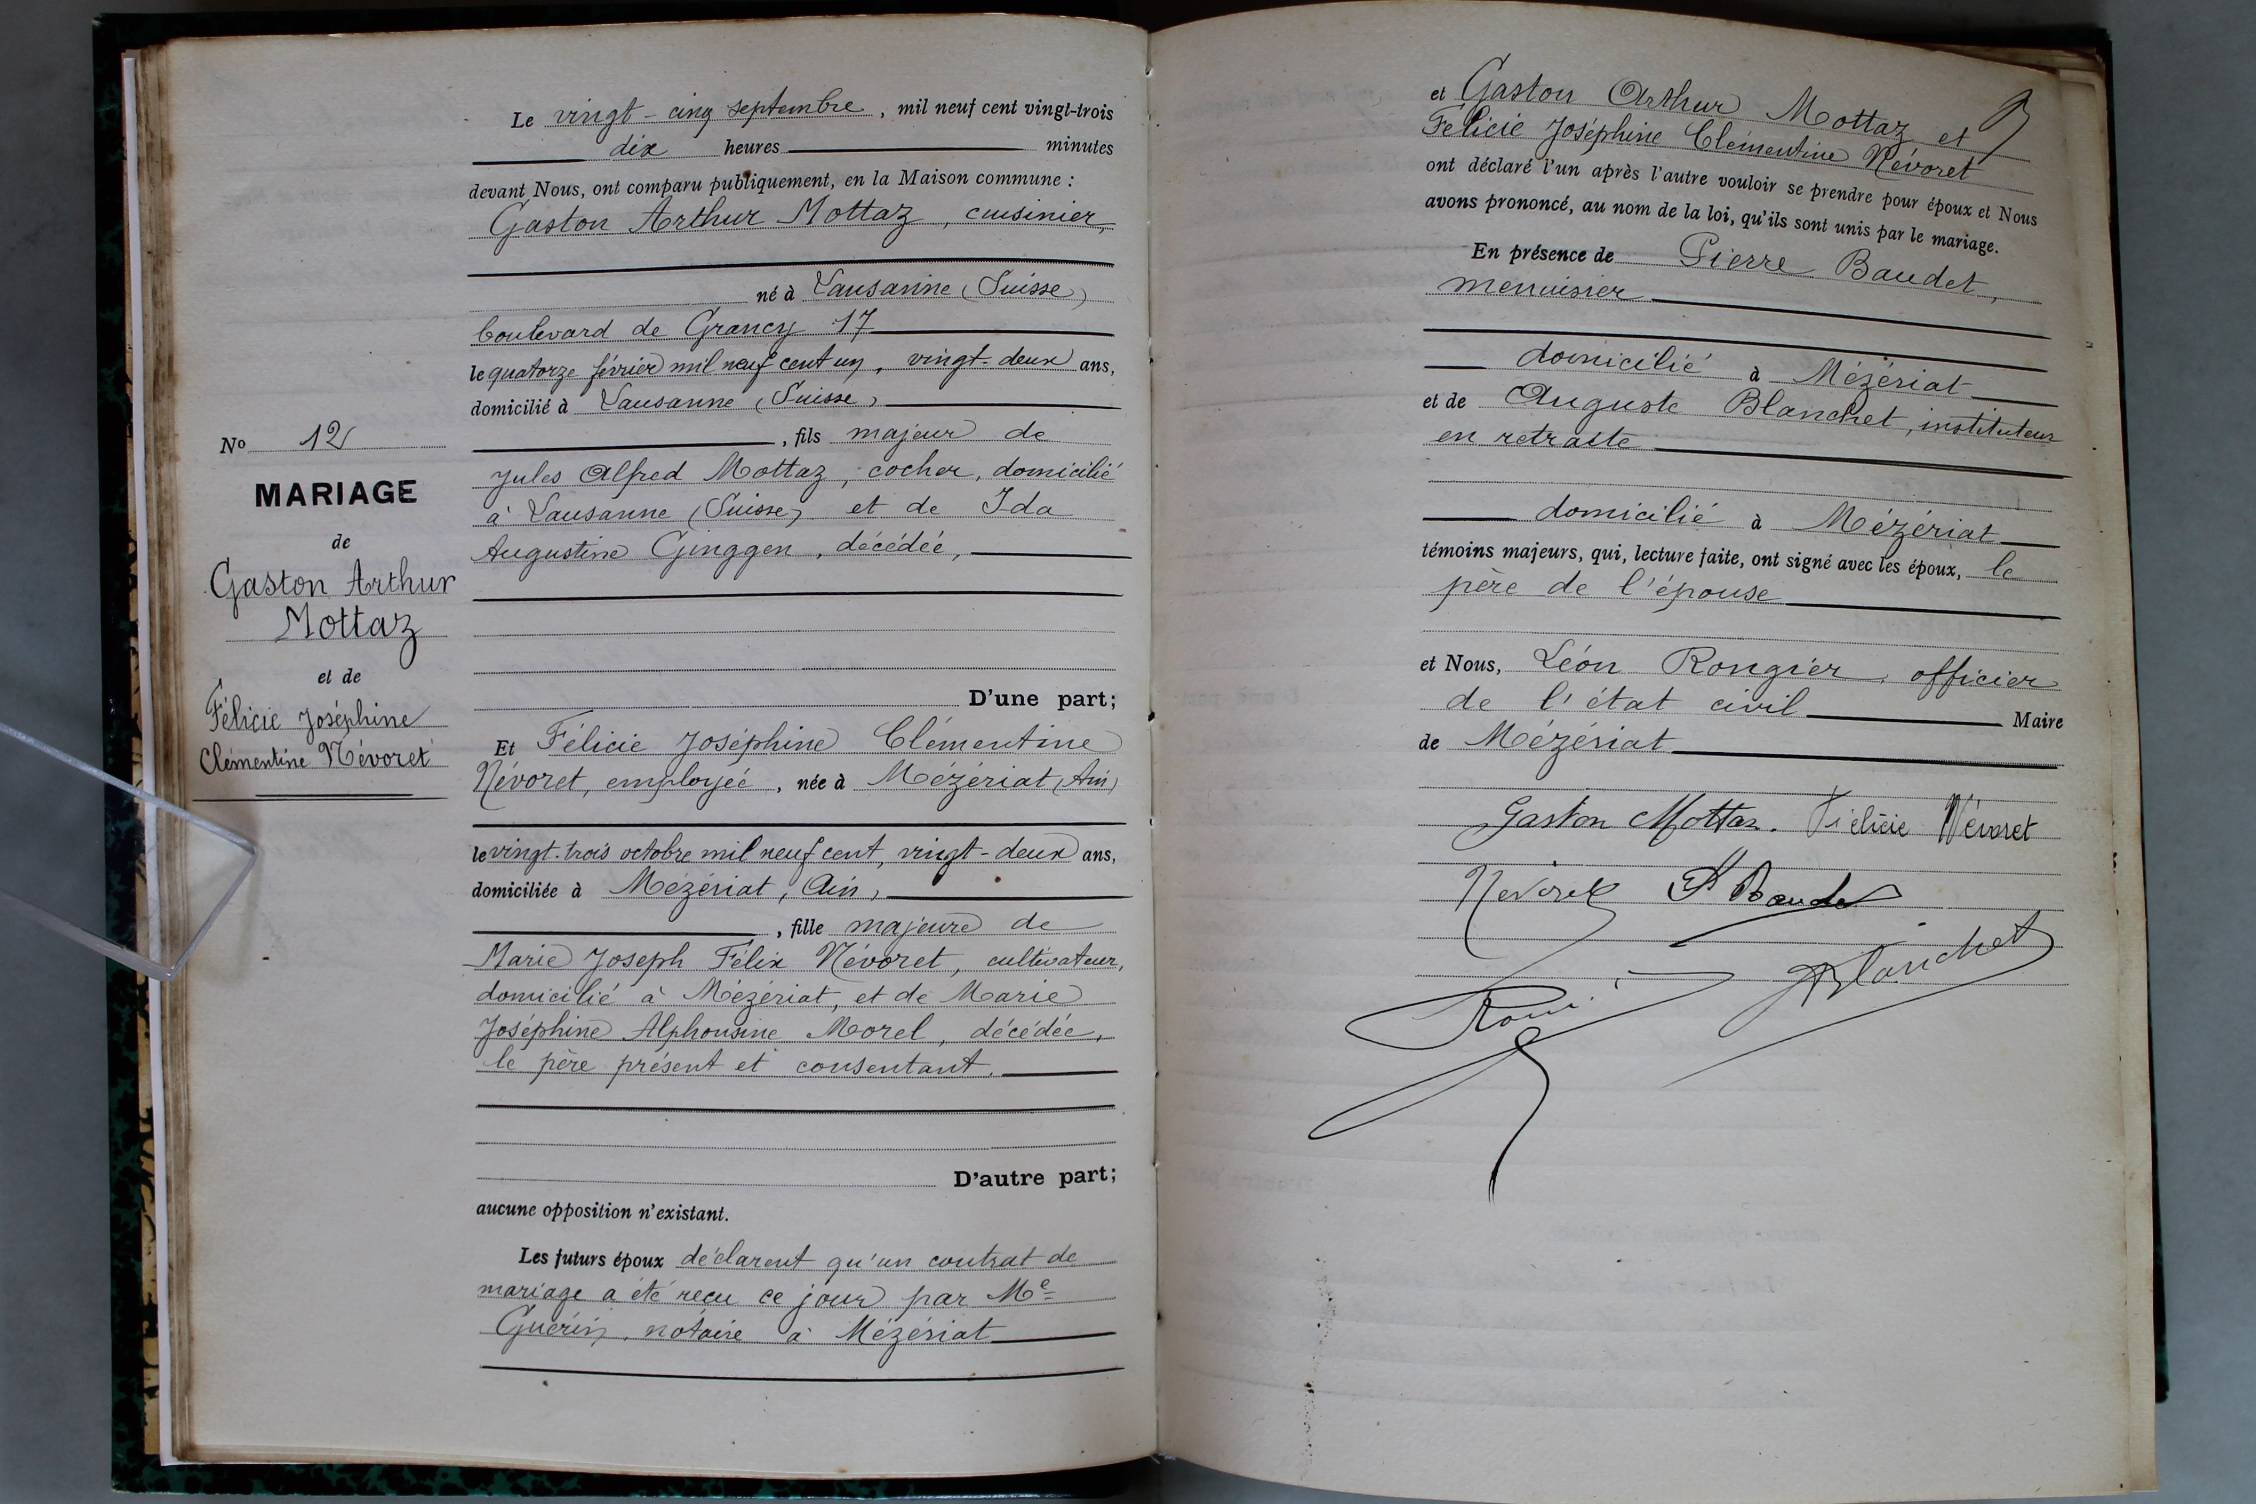 Le vingt-cinq septembre, mil neuf cent vingt-trois
dix heures minutes
devant Nous, ont comparu publiquement, en la Maison commune :
Gaston Arthur Mottaz, cuisinier,
né à Lausanne (Suisse)
boulevard de Grancy 17
le quatorze février mil neuf cent un, vingt-deux ans,
domicilié à Lausanne (Suisse)
, fils majeur de
Jules Alfred Mottaz, cocher, domicilié
à Lausanne (Suisse) et de Ida
Augustine Ginggen, décédée,
D'une part;
Et Félicie Joséphine Clémentine
Névoret, employée, née à Mézériat (Ain)
le vingt-trois octobre mil neuf cent, vingt-deux ans,
domiciliée à Mézériat, (Ain)
, fille majeure de
Marie Joseph Félix Névoret, cultivateur,
domicilié à Mézériat, et de Marie
Joséphine Alphonsine Morel, décédée,
le père présent et consentant.
D'autre part;
aucune opposition n'existant.
Les futurs époux déclarent qu'un contrat de
mariage a été reçu ce jour par Me
Guérin, notaire à Mézériat
No 12
MARIAGE
de
Gaston Arthur
Mottaz
et de
Félicie Joséphine
Clémentine Névoret
et Gaston Arthur Mottaz et
Félicie Joséphine Clémentine Névoret
ont déclaré l'un après l'autre vouloir se prendre pour époux et Nous
avons prononcé, au nom de la loi, qu'ils sont unis par le mariage.
En présence de Pierre Baudet,
menuisier
domicilié à Mézériat
et de Auguste Blanchet, instituteur
en retraite
domicilié à Mézériat
témoins majeurs, qui, lecture faite, ont signé avec les époux, le
père de l'épouse
et Nous, Léon Rongier, officier
de l'état civil Maire
de Mézériat
Gaston Mottaz. Félicie Névoret
Nevoret P Baudet
A Blanchet